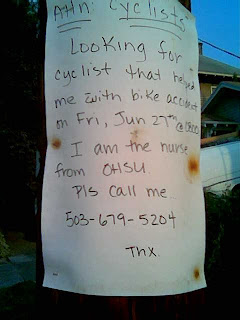 Attn: Cyclists
Looking for
cyclist that helped
me with bike accident
on Fri, Jun 27th @ 1900
I am the nurse
from OHSU.
Pls call me
503-679-5204
Thx.